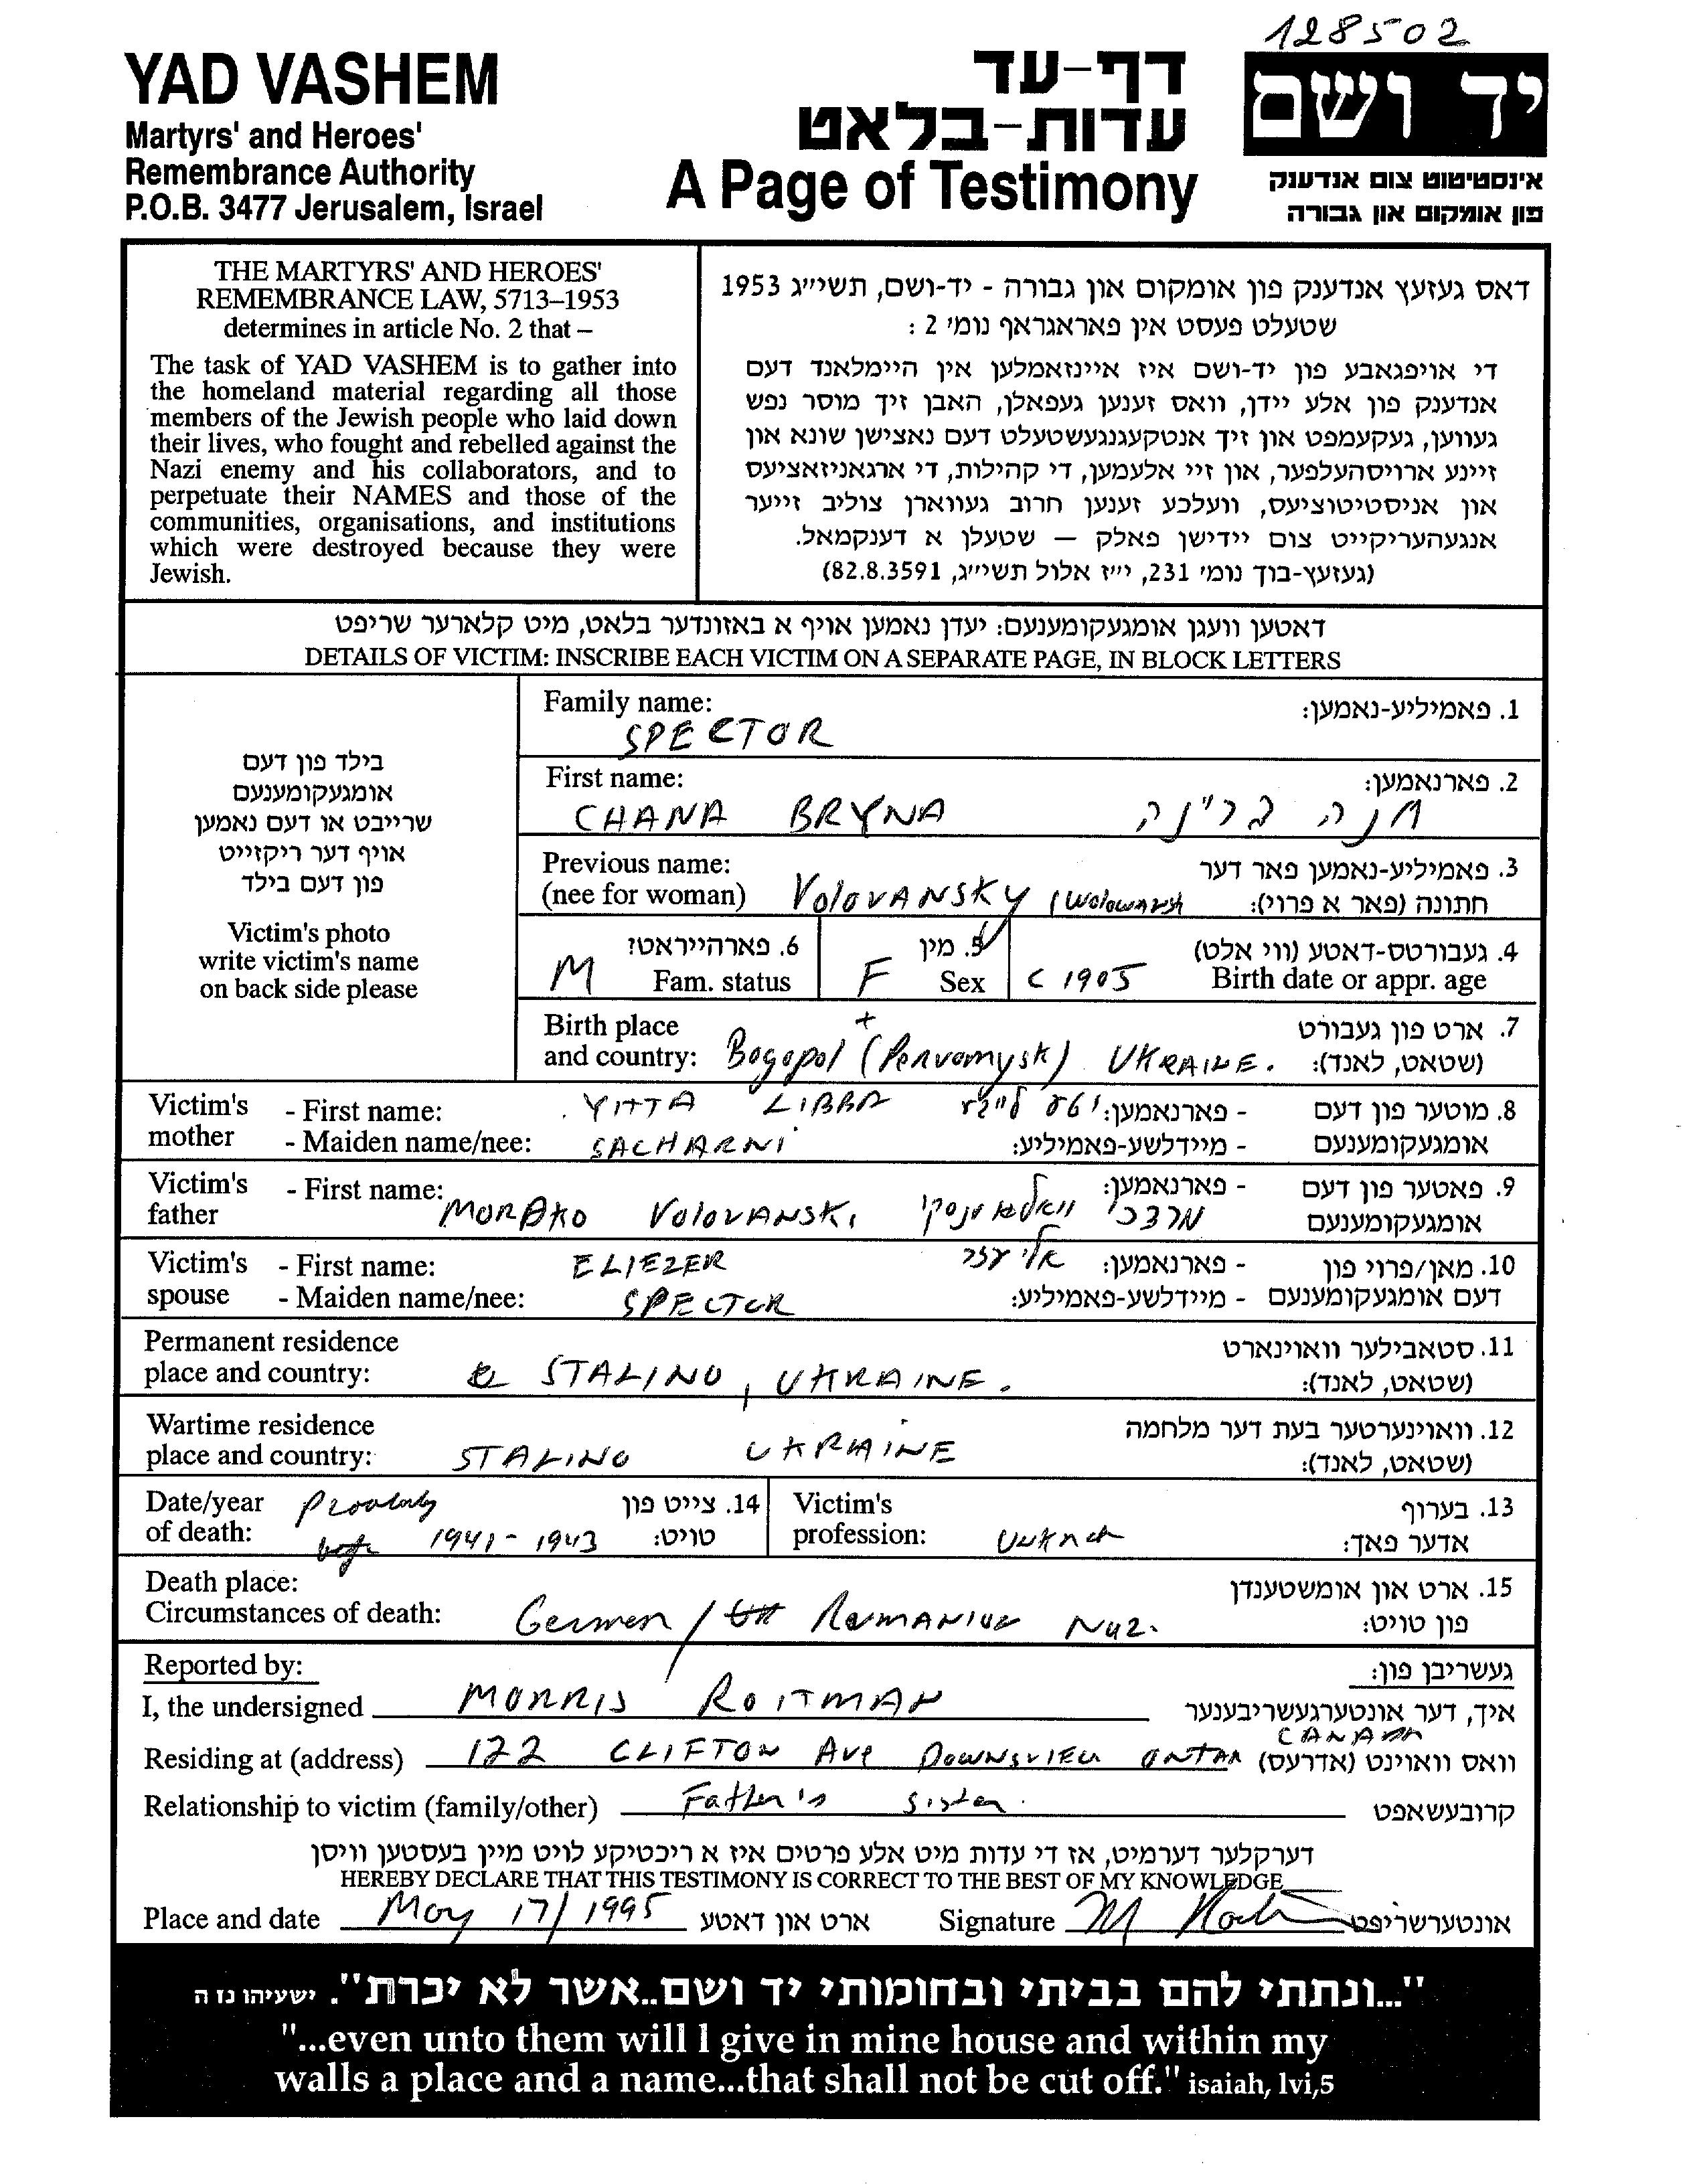 128502
YAD VASHEM
Martyrs' and Heroes'
Remembrance Authority
P.O.B. 3477 Jerusalem, Israel
דף-עד
עדות-בלאט
A Page of Testimony
יד ושם
אינסטיטוט צום אנדענק
פון אומקום און גבורה
THE MARTYRS' AND HEROES'
REMEMBRANCE LAW, 5713–1953
determines in article No. 2 that –
The task of YAD VASHEM is to gather into
the homeland material regarding all those
members of the Jewish people who laid down
their lives, who fought and rebelled against the
Nazi enemy and his collaborators, and to
perpetuate their NAMES and those of the
communities, organisations, and institutions
which were destroyed because they were
Jewish.
דאס געזעץ אנדענק פון אומקום און גבורה - יד-ושם, תשי״ג 1953
שטעלט פעסט אין פאראגראף נומ׳ 2 :
די אויפגאבע פון יד-ושם איז איינזאמלען אין היימלאנד דעם
אנדענק פון אלע יידן, וואס זענען געפאלן, האבן זיך מוסר נפש
געווען, געקעמפט און זיך אנטקעגנגעשטעלט דעם נאצישן שונא און
זיינע ארויסהעלפער, און זיי אלעמען, די קהילות, די ארגאניזאציעס
און אניסטיטוציעס, וועלכע זענען חרוב געווארן צוליב זייער
אנגעהעריקייט צום יידישן פאלק — שטעלן א דענקמאל.
(געזעץ-בוך נומ׳ 231, י״ז אלול תשי״ג, 82.8.3591)
דאטען וועגן אומגעקומענעם: יעדן נאמען אויף א באזונדער בלאט, מיט קלארער שריפט
DETAILS OF VICTIM: INSCRIBE EACH VICTIM ON A SEPARATE PAGE, IN BLOCK LETTERS
בילד פון דעם
אומגעקומענעם
שרייבט או דעם נאמען
אויף דער ריקזייט
פון דעם בילד
Victim's photo
write victim's name
on back side please
Family name: 1. פאמיליע-נאמען:
SPECTOR
First name: 2. פארנאמען:
CHANA BRYNA חנה בריינה
Previous name: 3. פאמיליע-נאמען פאר דער
(nee for woman) VOLOVANSKY חתונה (פאר א פרוי):
6. פארהייראט? 5. מין 4. געבורטס-דאטע (ווי אלט)
M Fam. status F Sex C 1905 Birth date or appr. age
Birth place 7. ארט פון געבורט
and country: Bogopol (Pervomysk) UKRAINE. (שטאט, לאנד):
Victim's - First name: YITTA LIBBA - פארנאמען: 8. מוטער פון דעם
mother - Maiden name/nee: SACHARNI - מיידלשע-פאמיליע: אומגעקומענעם
Victim's - First name: - פארנאמען: 9. פאטער פון דעם
father VOLOVANSKI מרדכי אומגעקומענעם
Victim's - First name: ELIEZER אליעזר - פארנאמען: 10. מאן/פרוי פון
spouse - Maiden name/nee: SPECTOR - מיידלשע-פאמיליע: דעם אומגעקומענעם
Permanent residence 11. סטאבילער וואוינארט
place and country: STALINO, UKRAINE. (שטאט, לאנד):
Wartime residence 12. וואוינערטער בעת דער מלחמה
place and country: STALINO UKRAINE (שטאט, לאנד):
Date/year Probably 14. צייט פון
of death: 1941 - 1943 טויט:
Victim's 13. בערוף
profession: אדער פאך:
Death place: 15. ארט און אומשטענדן
Circumstances of death: German / פון טויט:
Reported by: געשריבן פון:
I, the undersigned MORRIS ROITMAN איך, דער אונטערגעשריבענער
CANADA
Residing at (address) 122 CLIFTON AVE DOWNSVIEW וואס וואוינט (אדרעס)
Relationship to victim (family/other) Father's sister. קרובעשאפט
דערקלער דערמיט, אז די עדות מיט אלע פרטים איז א ריכטיקע לויט מיין בעסטען וויסן
HEREBY DECLARE THAT THIS TESTIMONY IS CORRECT TO THE BEST OF MY KNOWLEDGE
Place and date May 17/1995 ארט און דאטע Signature אונטערשריפט
"...ונתתי להם בביתי ובחומותי יד ושם..אשר לא יכרת". ישעיהו נז ה
"...even unto them will I give in mine house and within my
walls a place and a name...that shall not be cut off." isaiah, lvi,5